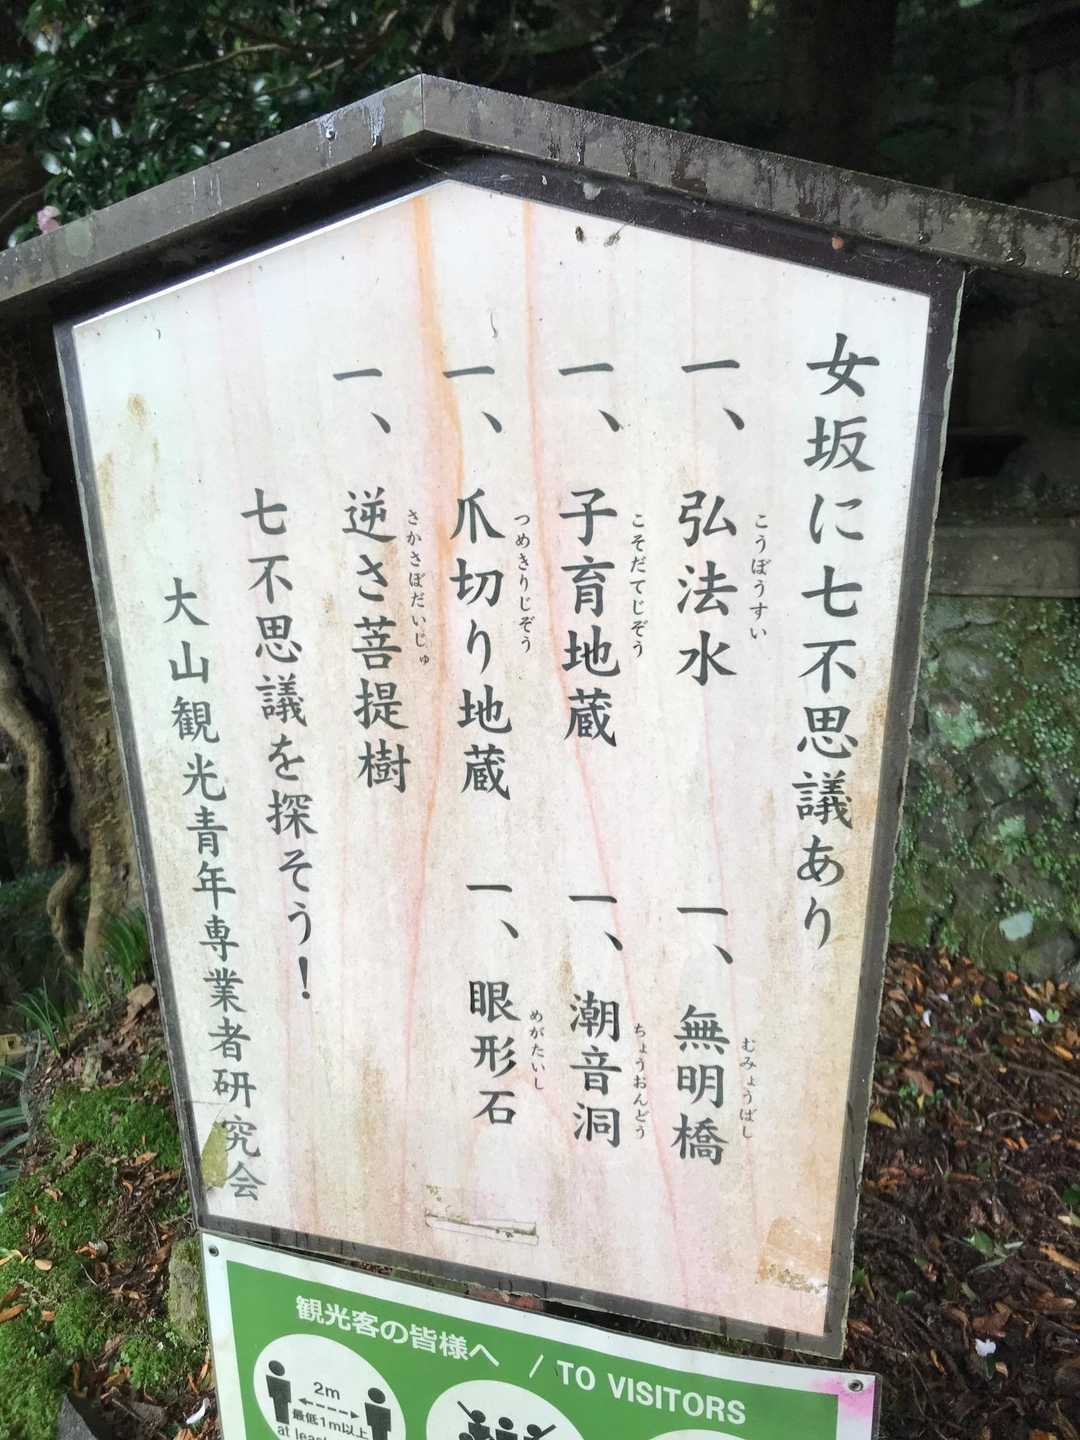 女坂に七不思議あり
一、弘法水
こうぼうすい
一、無明橋
むみょうばし
一、子育地蔵
こそだてじぞう
一、潮音洞
ちょうおんどう
一、爪切り地蔵
つめきりじぞう
一、眼形石
めがたいし
一、逆さ菩提樹
さかさぼだいじゅ
七不思議を探そう!
大山観光青年専業者研究会
観光客の皆様へ / TO VISITORS
2m
最低1m以上